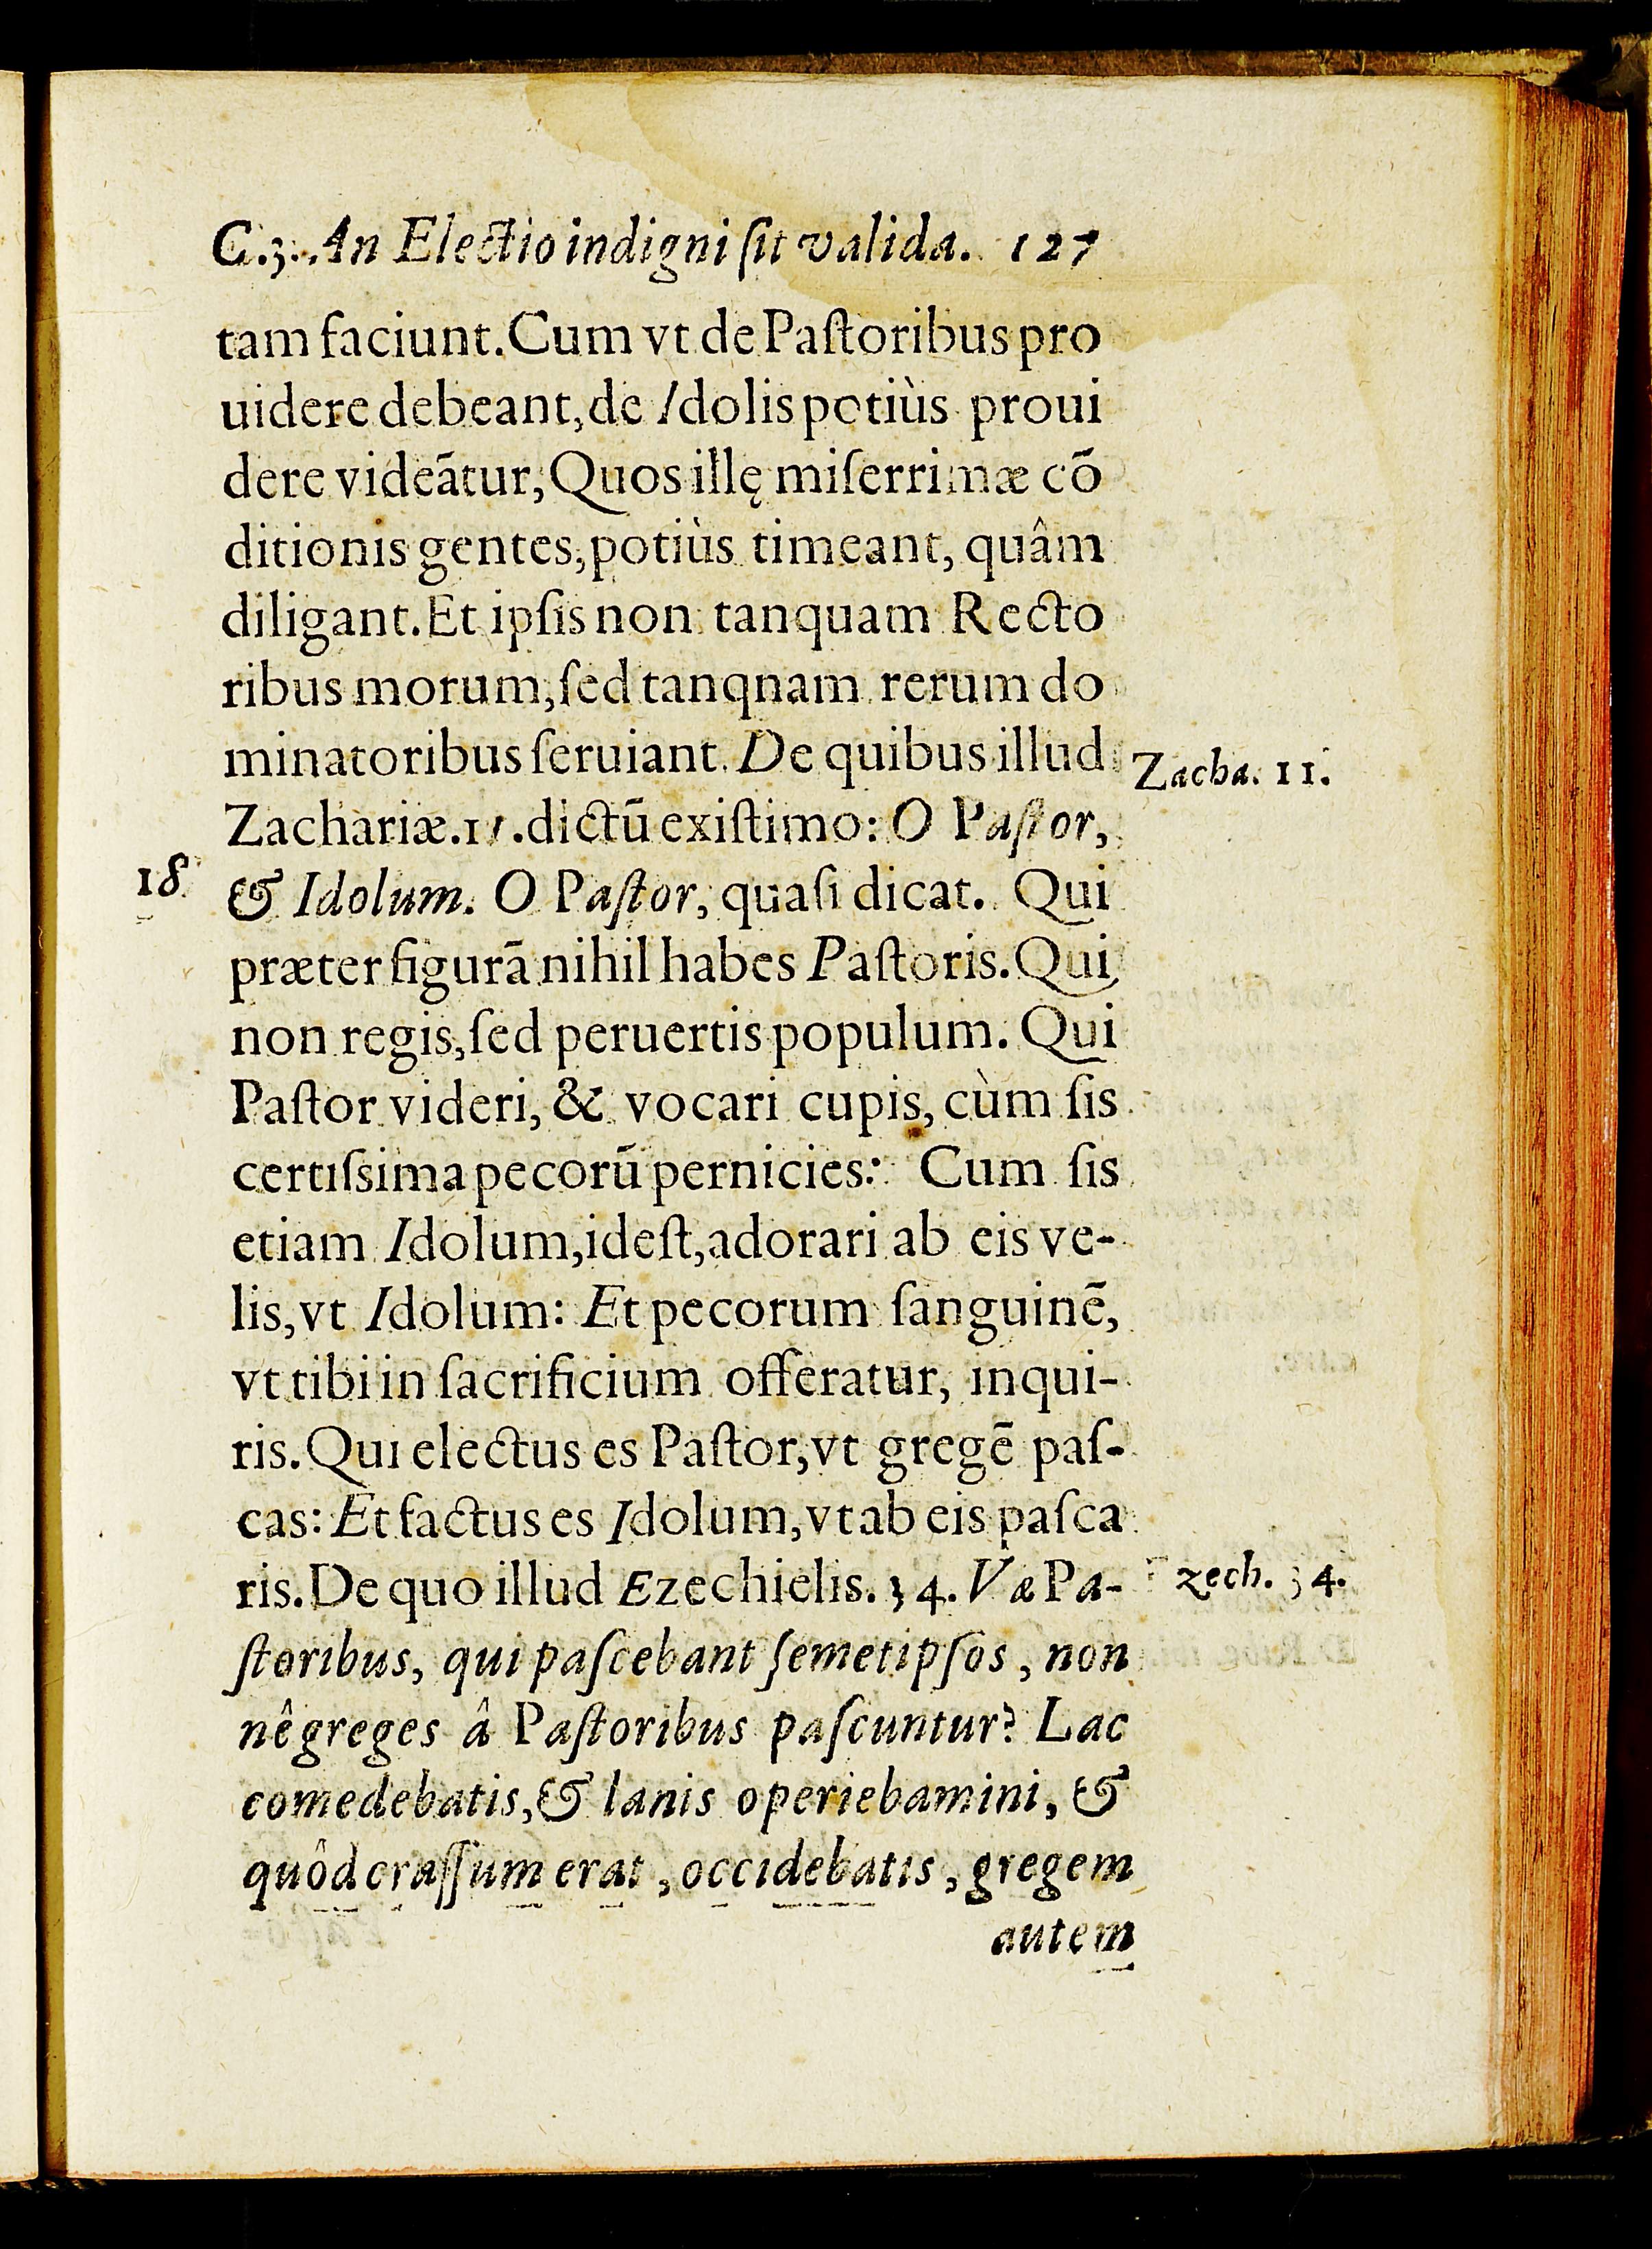 C.3. An Electio indigni ſit valida. 127
tam faciunt. Cum vt de Paſtoribus pro
uidere debeant, de Idolis potiùs proui
dere videātur, Quos illę miſerrimæ cō
ditionis gentes, potiùs timeant, quâm
diligant. Et ipſis non tanquam Recto
ribus morum, ſed tanqnam rerum do
minatoribus ſeruiant. De quibus illud
Zacha. 11.
Zachariæ. 11. dictū exiſtimo: O Paſtor,
18
& Idolum. O Paſtor, quaſi dicat. Qui
præter figurā nihil habes Paſtoris. Qui
non regis, ſed peruertis populum. Qui
Paſtor videri, & vocari cupis, cùm ſis
certiſsima pecorū pernicies: Cum ſis
etiam Idolum, ideſt, adorari ab eis ve-
lis, vt Idolum: Et pecorum ſanguinē,
vt tibi in ſacrificium offeratur, inqui-
ris. Qui electus es Paſtor, vt gregē paſ-
cas: Et factus es Idolum, vt ab eis paſca
ris. De quo illud Ezechielis. 34. Væ Pa-
zech. 34.
ſtoribus, qui paſcebant ſemetipſos, non
nê greges â Paſtoribus paſcuntur? Lac
comedebatis, & lanis operiebamini, &
quôd craſſum erat, occidebatis, gregem
autem